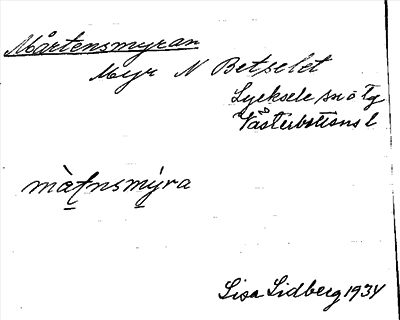 Mårtensmyran
Myr N Betselet
Lycksele sn o Tg
Västerbottens l
màt̠nsmy̠ra
Lisa Lidberg 1934